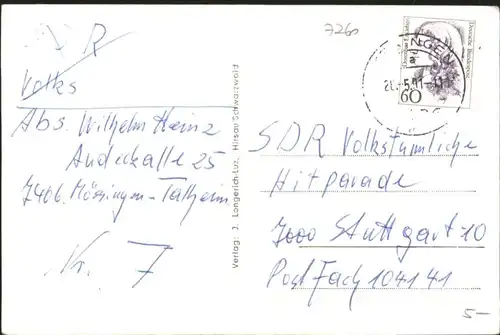 7260
DR
Volks
Abs. Wilhelm Heinz
25
7406 Mössingen-Talheim
Nr. 7
Verlag: J. Longerich-Lutz, Hirsau/Schwarzwald
Deutsche Bundespost
60
SDR Volkstümliche
Hitparade
7000 Stuttgart 10
Postfach 104141
5-